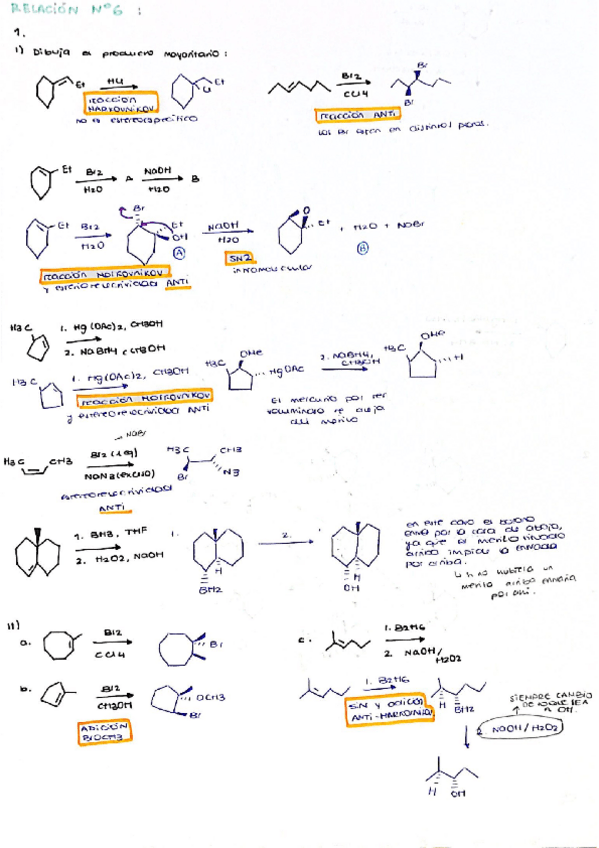 RELACIÓN Nº6 :
1.
i) Dibuja el producto mayoritario :
Et
HCl
Et
Cl
reacción
MARKOVNIKOV
no es estereoespecífico
Br2
CCl4
Br
Br
reacción ANTI
Los Br están en distintos planos.
Et
Br2
H2O
A
NaOH
H2O
B
Et
Br2
H2O
Br
Et
OH
A
NaOH
H2O
SN2
intramolecular
O
Et
+ H2O + NaBr
B
reacción MARKOVNIKOV
y estereoselectividad ANTI
H3C
1. Hg(OAc)2, CH3OH
2. NaBH4, CH3OH
H3C
1. Hg(OAc)2, CH3OH
reacción MARKOVNIKOV
y estereoselectividad ANTI
H3C
OMe
HgOAc
2. NaBH4,
CH3OH
H3C
OMe
H
El mercurio por ser
voluminoso se aleja
del metilo
NaBr
H3C
CH3
Br2 (1 eq)
NaN3 (exceso)
H3C
CH3
Br
N3
estereoselectividad
ANTI
1. BH3, THF
2. H2O2, NaOH
1.
H
BH2
2.
H
OH
en este caso el boro
entra por la cara de abajo,
ya que el metilo situado
arriba impide la entrada
por arriba.
si no hubiera un
metilo arriba entraría
por ahí.
ii)
a.
Br2
CCl4
Br
b.
Br2
CH3OH
OCH3
Br
ADICIÓN
BrOCH3
c.
1. B2H6
2. NaOH/
H2O2
1. B2H6
SIN y adición
ANTI-MARKOVNIKOV
H
BH2
SIEMPRE CAMBIO
DE LO QUE SEA
A OH.
2. NaOH/H2O2
H
OH